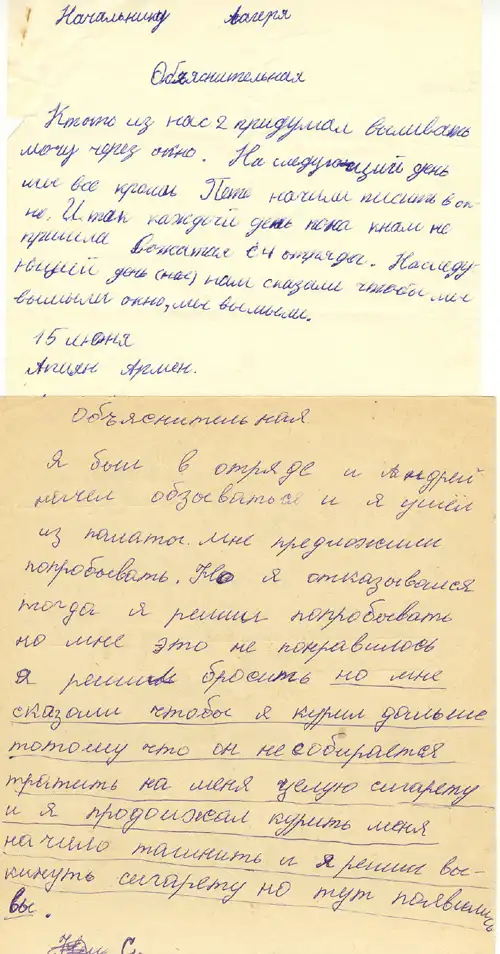 Начальнику лагеря
Объяснительная
Ктото из нас 2 придумал выливать
мочу через окно. На следующий день
мы все кроми Пети начили писить в ок-
но. И так каждый день пока кнам не
пришла Вожатая с 4 отряда. Наследу-
ющий день (нас) нам сказали чтобы мы
вымыли окно, мы вымыли.
15 июня
Апиян Армен.
Объяснительная
я был в отряде и Андрей
начел обзываться и я ушёл
из палаты. мне предложили
попробывать. Но я отказывался
тогда я решил попробывать
но мне это не понравилось
я решил бросить но мне
сказали чтобы я курил дальше
потому что он не собирается
тратить на меня целую сигарету
и я продолжал курить меня
начило ташнить и я решил вы-
кинуть сигарету но тут появились
вы.